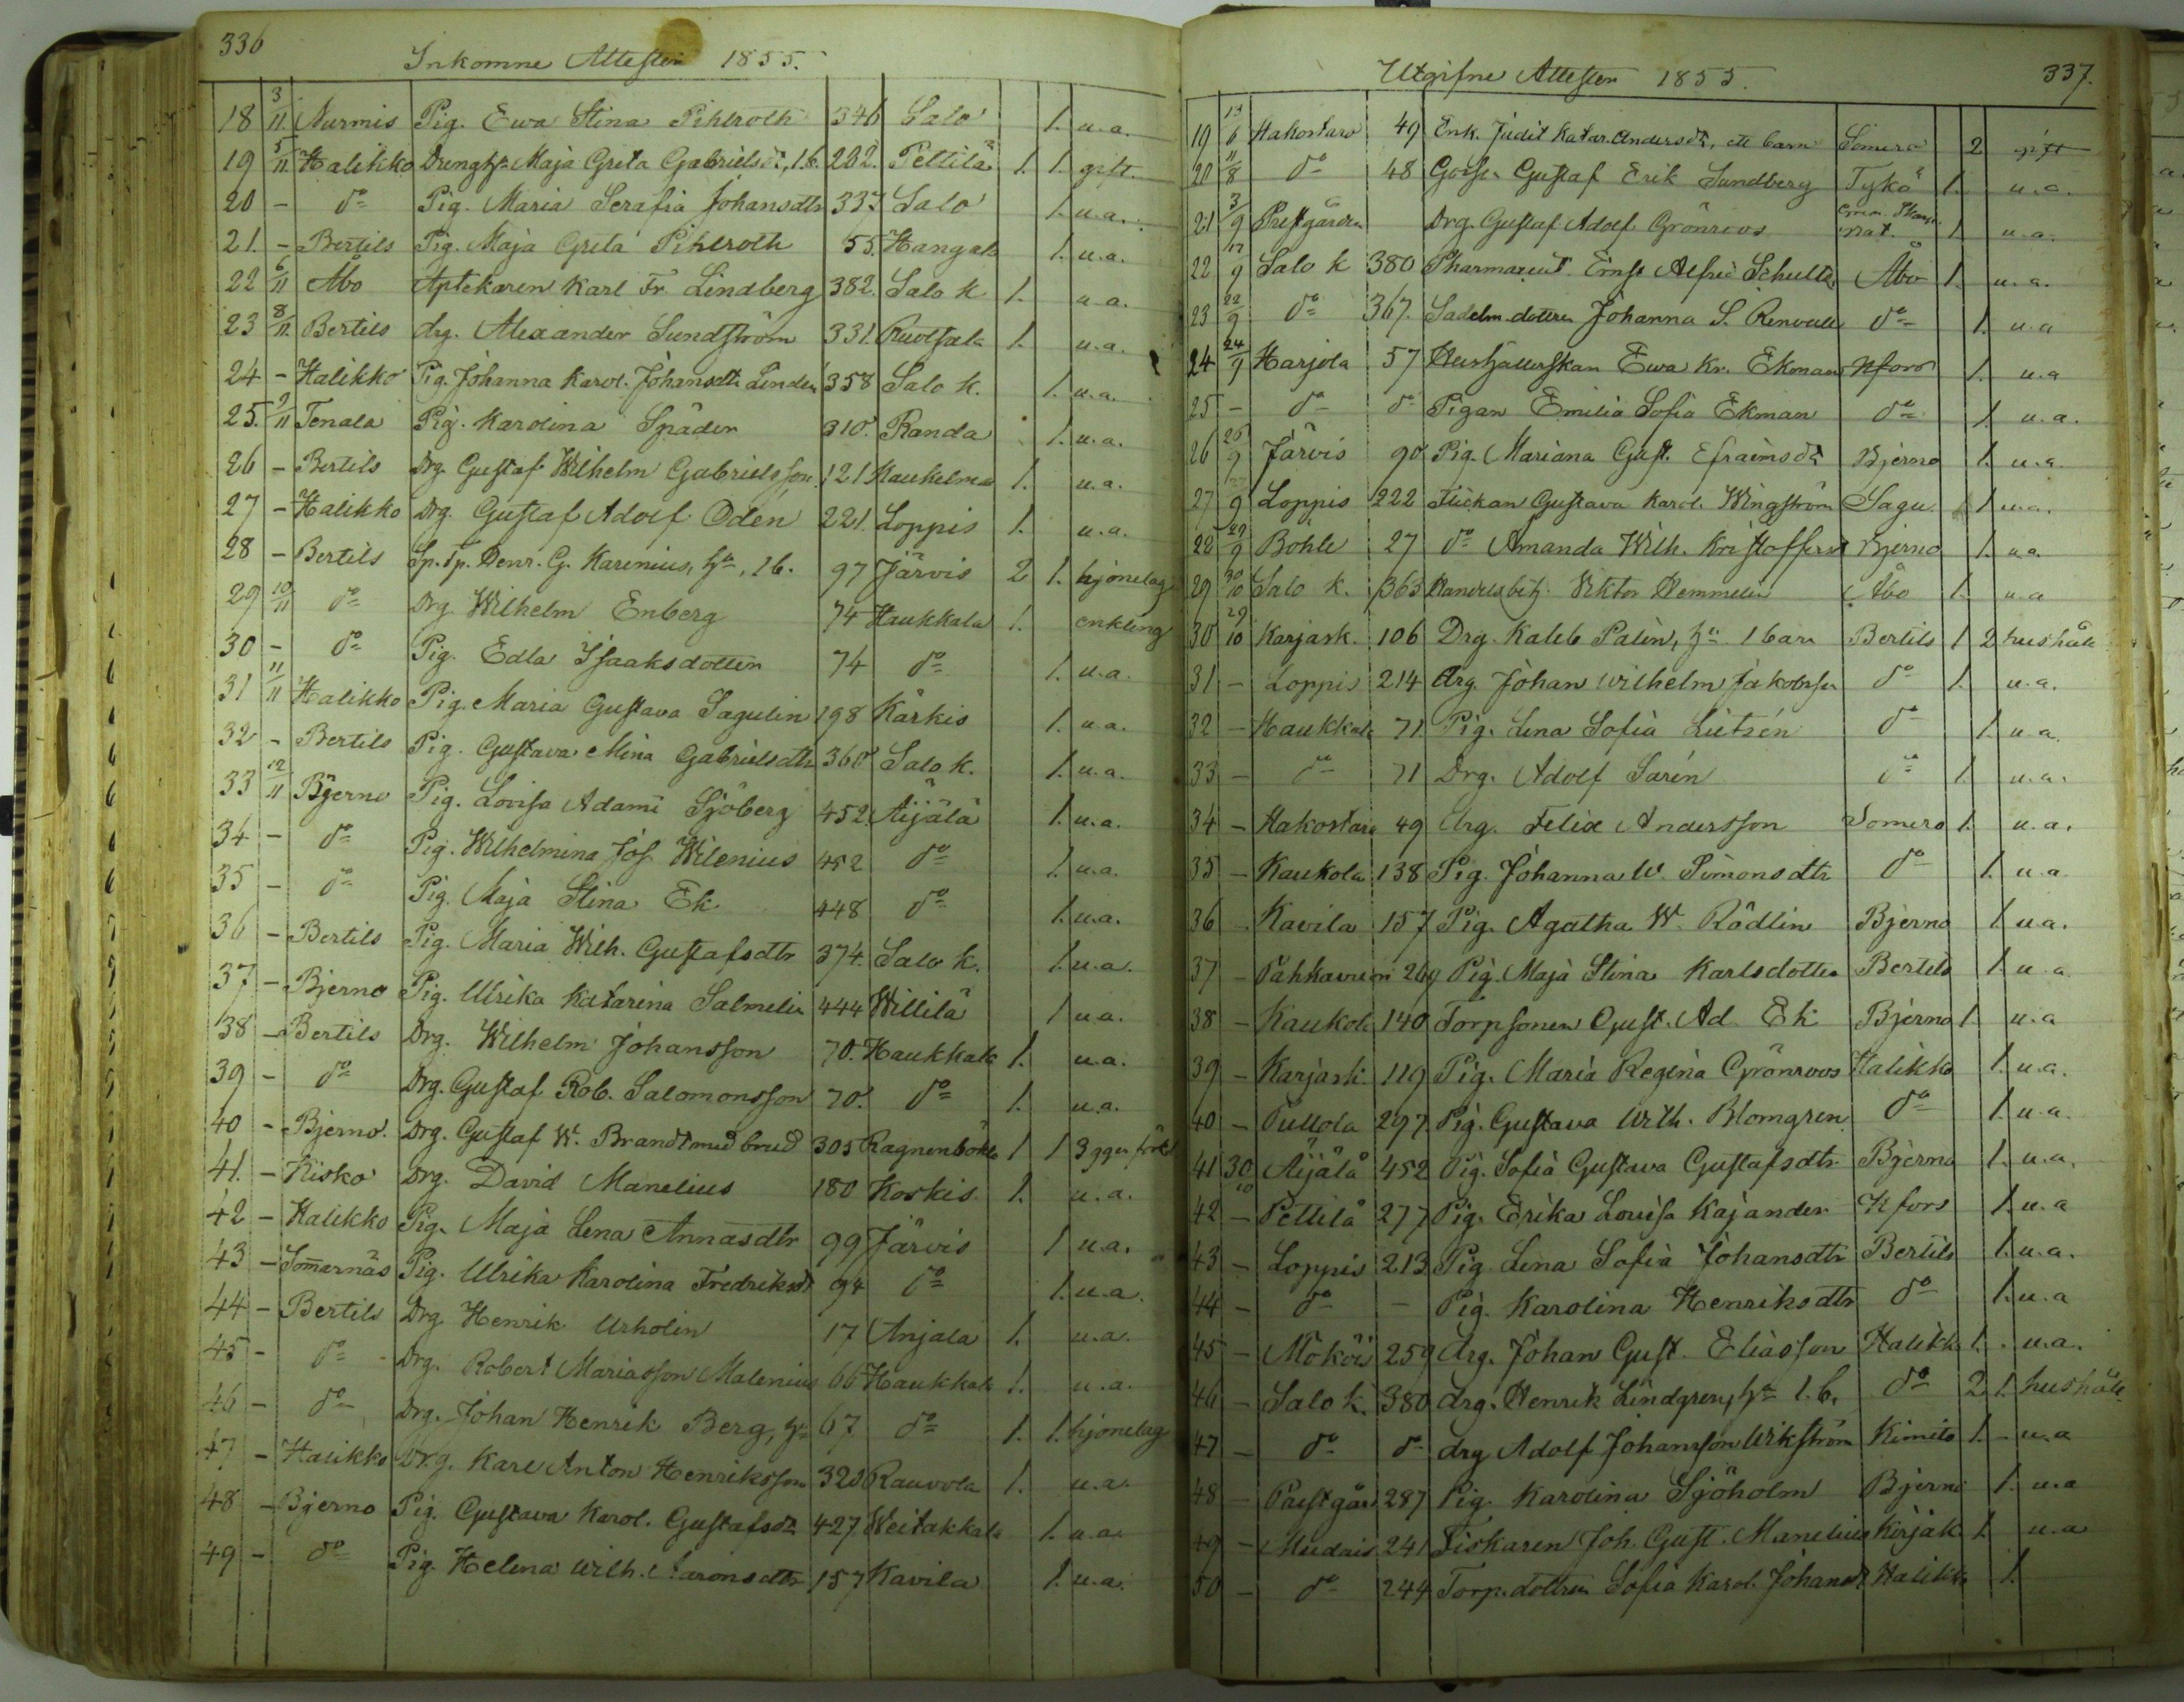 336
Inkomne Attester 1855.
18 3/11 Nurmis Pig. Ewa Stina Pihlroth 346 Salo 1. u.a.
19 5/11 Halikko Drenghu. Maja Greta Gabrielsdr, 1 b. 282. Pettilä 1. 1. gift.
20 - do Pig. Maria Serafia Johansdtr 337 Salo 1. u.a.
21. - Bertils Pig. Maja Greta Pihlroth 55. Hangala 1. u.a.
22 6/11 Åbo Aptekaren Karl Fr. Lindberg 382. Salo k 1. u.a.
23 8/11 Bertils drg. Alexander Sundström 331. Ruotsala 1. u.a.
24 - Halikko Pig. Johanna Karol. Johansdtr Linden 358 Salo k. 1. u.a.
25. 9/11 Tenala Pig. Karolina Späder 310. Randa 1. u.a.
26 - Bertils Drg Gustaf Wilhelm Gabrielsson 121 Kaukelmaa 1. u.a.
27 - Halikko Drg. Gustaf Adolf Odén 221. Loppis 1. u.a.
28 - Bertils Sp. Tp. Henr. G. Karenius, hu, 1 b. 97 Järvis 2 1. hjonelag
29 10/11 do Drg. Wilhelm Enberg 74 Haukkala 1. enkling
30 - do Pig. Edla Isaaksdotter 74 do 1. u.a.
31 11/11 Halikko Pig. Maria Gustava Sagulin 198 Kärkis 1. u.a.
32 - Bertils Pig. Gustava Mina Gabrielsdtr 360 Salo k. 1. u.a.
33 12/11 Bjerno Pig. Lovisa Adami Sjöberg 452. Aijälä 1. u.a.
34 - do Pig. Wilhelmina Jos. Wilenius 452 do 1. u.a.
35 - do Pig. Maja Stina Ek 448 do 1. u.a.
36 - Bertils Pig. Maria Wilh. Gustafsdtr 374. Salo k. 1. u.a.
37 - Bjerno Pig. Ulrika Katarina Salmelin 444 Willilä 1 u.a.
38 - Bertils Drg. Wilhelm Johansson 70. Haukkala 1. u.a.
39 - do Drg. Gustaf Rob. Salomonsson 70. do 1. u.a.
40 - Bjerno. Drg. Gustaf W. Brandt med brud 305 Ragnenböle 1 1 3 gger
41. - Kisko Drg. David Manelius 180 Koskis 1. u.a.
42 - Halikko Pig. Maja Lena Annasdtr 99 Järvis 1 u.a.
43 - Somarnäs Pig. Ulrika Karolina Fredriksdr 94 do 1. u.a.
44 - Bertils Drg. Henrik Urholin 17 Anjala 1. u.a.
45 - do - Drg. Robert Mariasson Malenius 66 Haukkala 1. u.a.
46 - do Drg. Johan Henrik Berg, hu 67 do 1. 1. hjonelag
47 - Halikko Drg. Karl Anton Henriksson 320 Rauvola 1. u.a.
48 - Bjerno Pig. Gustava Karol. Gustafsdr 427 Weitakkala 1. u.a.
49 - do Pig. Helena Wilh. Aaronsdtr 157 Kavila 1. u.a.
Utgifne Attester 1855.
337.
19 13/6 Hakostaro 49 Enk. Judit Katar. Andersdr, ett barn Somero 2 gift
20 11/8 do 48 Goss. Gustaf Erik Sundberg Tykö 1. u.a.
21 3/9 Prestgården Drg. Gustaf Adolf Grönroos 1 u.a.
22 17/9 Salo k 380 Pharmaceut Ernst Alfred Schultz Åbo 1. u.a.
23 22/9 do 367. Sadelm. dottren Johanna S. Renvall do 1. u.a
24 24/9 Harjola 57 Hushållerskan Ewa Kr. Ekman Hfors 1. u.a
25 - do do Pigan Emilia Sofia Ekman do 1. u.a.
26 26/9 Järvis 90 Pig. Mariana Gust. Efraimsdr Bjerno 1. u.a
27 27/9 Loppis 222 Flickan Gustava Karol. Wingström Sagu 1 u.a.
28 29/9 Böhle 27 do Amanda Wilh. Kristoffersd Bjerno 1. u.a.
29 30/10 Salo k. 363 Handelsbetj. Viktor Hemmelin Åbo 1. u.a
30 29/10 Karjask. 106 Drg. Kaleb Palin, hu 1 barn Bertils 1 2 hushåll
31 - Loppis 214 drg. Johan Wilhelm Jakobsson do 1. u.a.
32 - Haukkala 71 Pig. Lena Sofia Lutzén do 1. u.a.
33 - do 71 Drg. Adolf Sarén do 1. u.a.
34 - Hakostaro 49 drg. Felix Andersson Somero 1. u.a.
35 - Kaukola 138 Pig. Johanna W. Simonsdtr do 1. u.a
36 - Kavila 157 Pig. Agatha W. Rödlin Bjerno 1. u.a.
37 - Pahkavuori 269 Pig. Maja Stina Karlsdotter Bertils 1. u.a
38 - Kaukola 140 Torpsonen Gust. Ad. Ek Bjerno 1 u.a
39 - Karjask. 119 Pig. Maria Regina Grönroos Halikko 1. u.a.
40 - Pullola 297 Pig. Gustava Wilh. Blomgren do 1. u.a.
41 30/10 Aijälä 452 Pig. Sofia Gustava Gustafsdtr Bjerno 1. u.a.
42 - Pettilä 277 Pig. Erika Lovisa Kajander Hfors 1. u.a
43 - Loppis 213 Pig. Lena Sofia Johansdtr Bertils 1. u.a.
44 - do - Pig. Karolina Henriksdtr do 1. u.a
45 - Mököis 259 drg. Johan Gust. Eliasson Halikk 1. u.a.
46 - Salo k. 380 drg. Henrik Lindgren, hu 1. b. do 2 1. hushåll
47 - do do drg Adolf Johansson Wikström Kimito 1. - u.a
48 - Prestgår 287 Pig. Karolina Sjöholm Bjerno 1. u.a
49 - Mudais 241 Fiskaren Joh. Gust. Manelius Kirjak. 1. u.a
50 - do 244 Torp. dottren Sofia Karol. Johansdr Halikko 1.